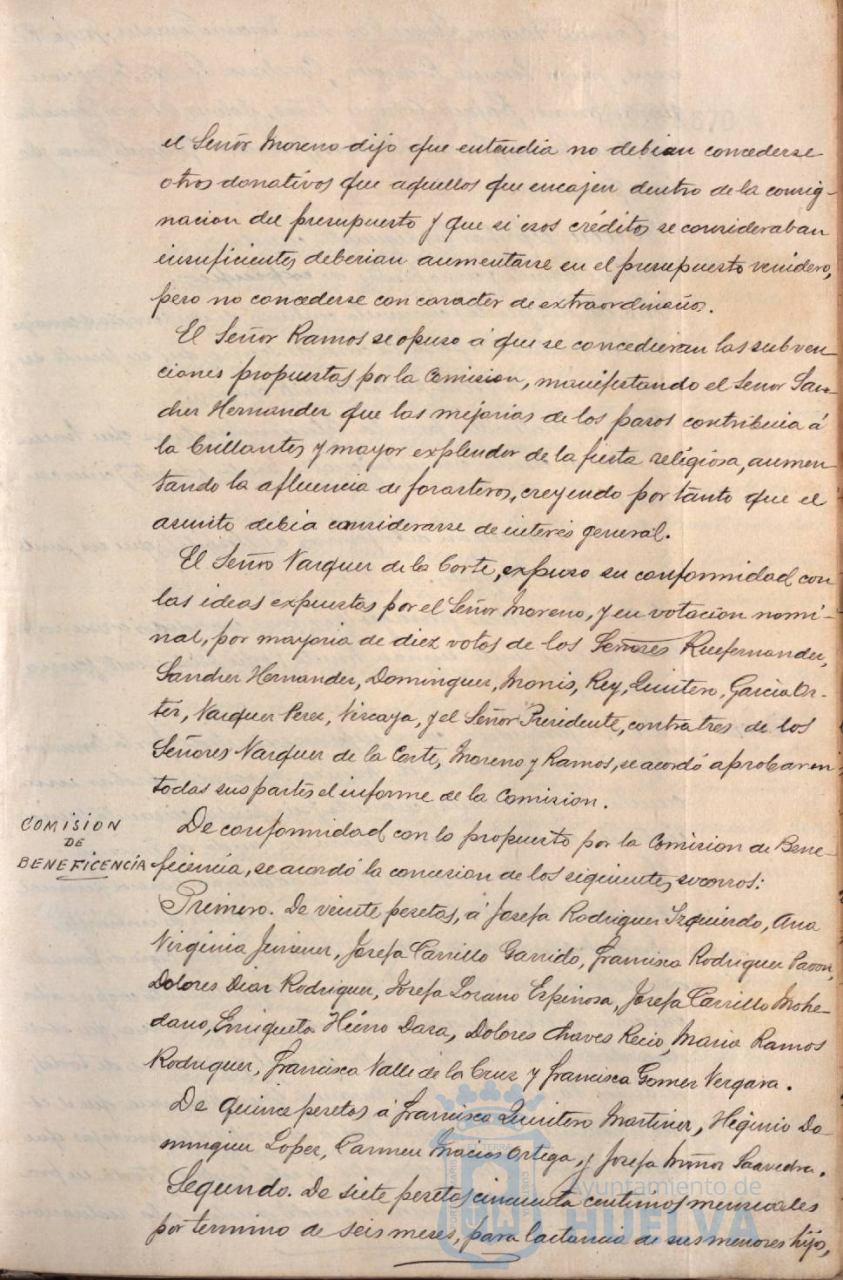 el Señor Moreno dijo que entendia no debian concederse
otros donativos que aquellos que encajen dentro de la consig-
nacion del presupuesto y que si esos créditos se consideraban
insuficientes deberian aumentarse en el presupuesto venidero,
pero no concederse con caracter de extraordinarios.
El Señor Ramos se opuso á que se concedieran las subven
ciones propuestas por la Comision, manifestando el Señor San-
chez Hernandez que las mejorias de los pasos contribuia á
la brillantes y mayor explendor de la fiesta religiosa, aumen-
tando la afluencia de forasteros, creyendo por tanto que el
asunto debia considerarse de interés general.
El Señor Vazquez de la Corte, expuso su conformidad con
las ideas expuestas por el Señor Moreno, y en votacion nomi-
nal, por mayoria de diez votos de los Señores Ruifernandez,
Sanchez Hernandez, Dominguez, Monis, Rey, Quintero, García Or-
téz, Vazquez Perez, Vizcaya, y el Señor Presidente, contra tres de los
Señores Vazquez de la Corte, Moreno y Ramos, se acordó aprobar en
todas sus partes el informe de la Comision.
COMISION
DE
BENEFICENCIA
De conformidad con lo propuesto por la Comision de Bene-
ficencia, se acordó la concesion de los siguientes socorros:
Primero. De veinte pesetas, á Josefa Rodriguez Izquierdo, Ana
Virginia Jimenez, Josefa Carrillo Garrido, Francisca Rodriguez Pavon,
Dolores Diaz Rodriguez, Josefa Lozano Espinosa, Josefa Carrillo Mohe-
dano, Enriqueta Daza, Dolores Chaves Recio, Maria Ramos
Rodriguez, Francisca Valle de la Cruz y Francisca Gomez Vergara.
De quince pesetas á Francisco Quintero Martinez, Higinio Do-
minguez Lopez, Carmen Macias Ortega, y Josefa Muñoz Saavedra.
Segundo. De siete pesetas cincuenta centimos mensuales
por termino de seis meses, para lactancia de sus menores hijos,
Ayuntamiento de
HUELVA